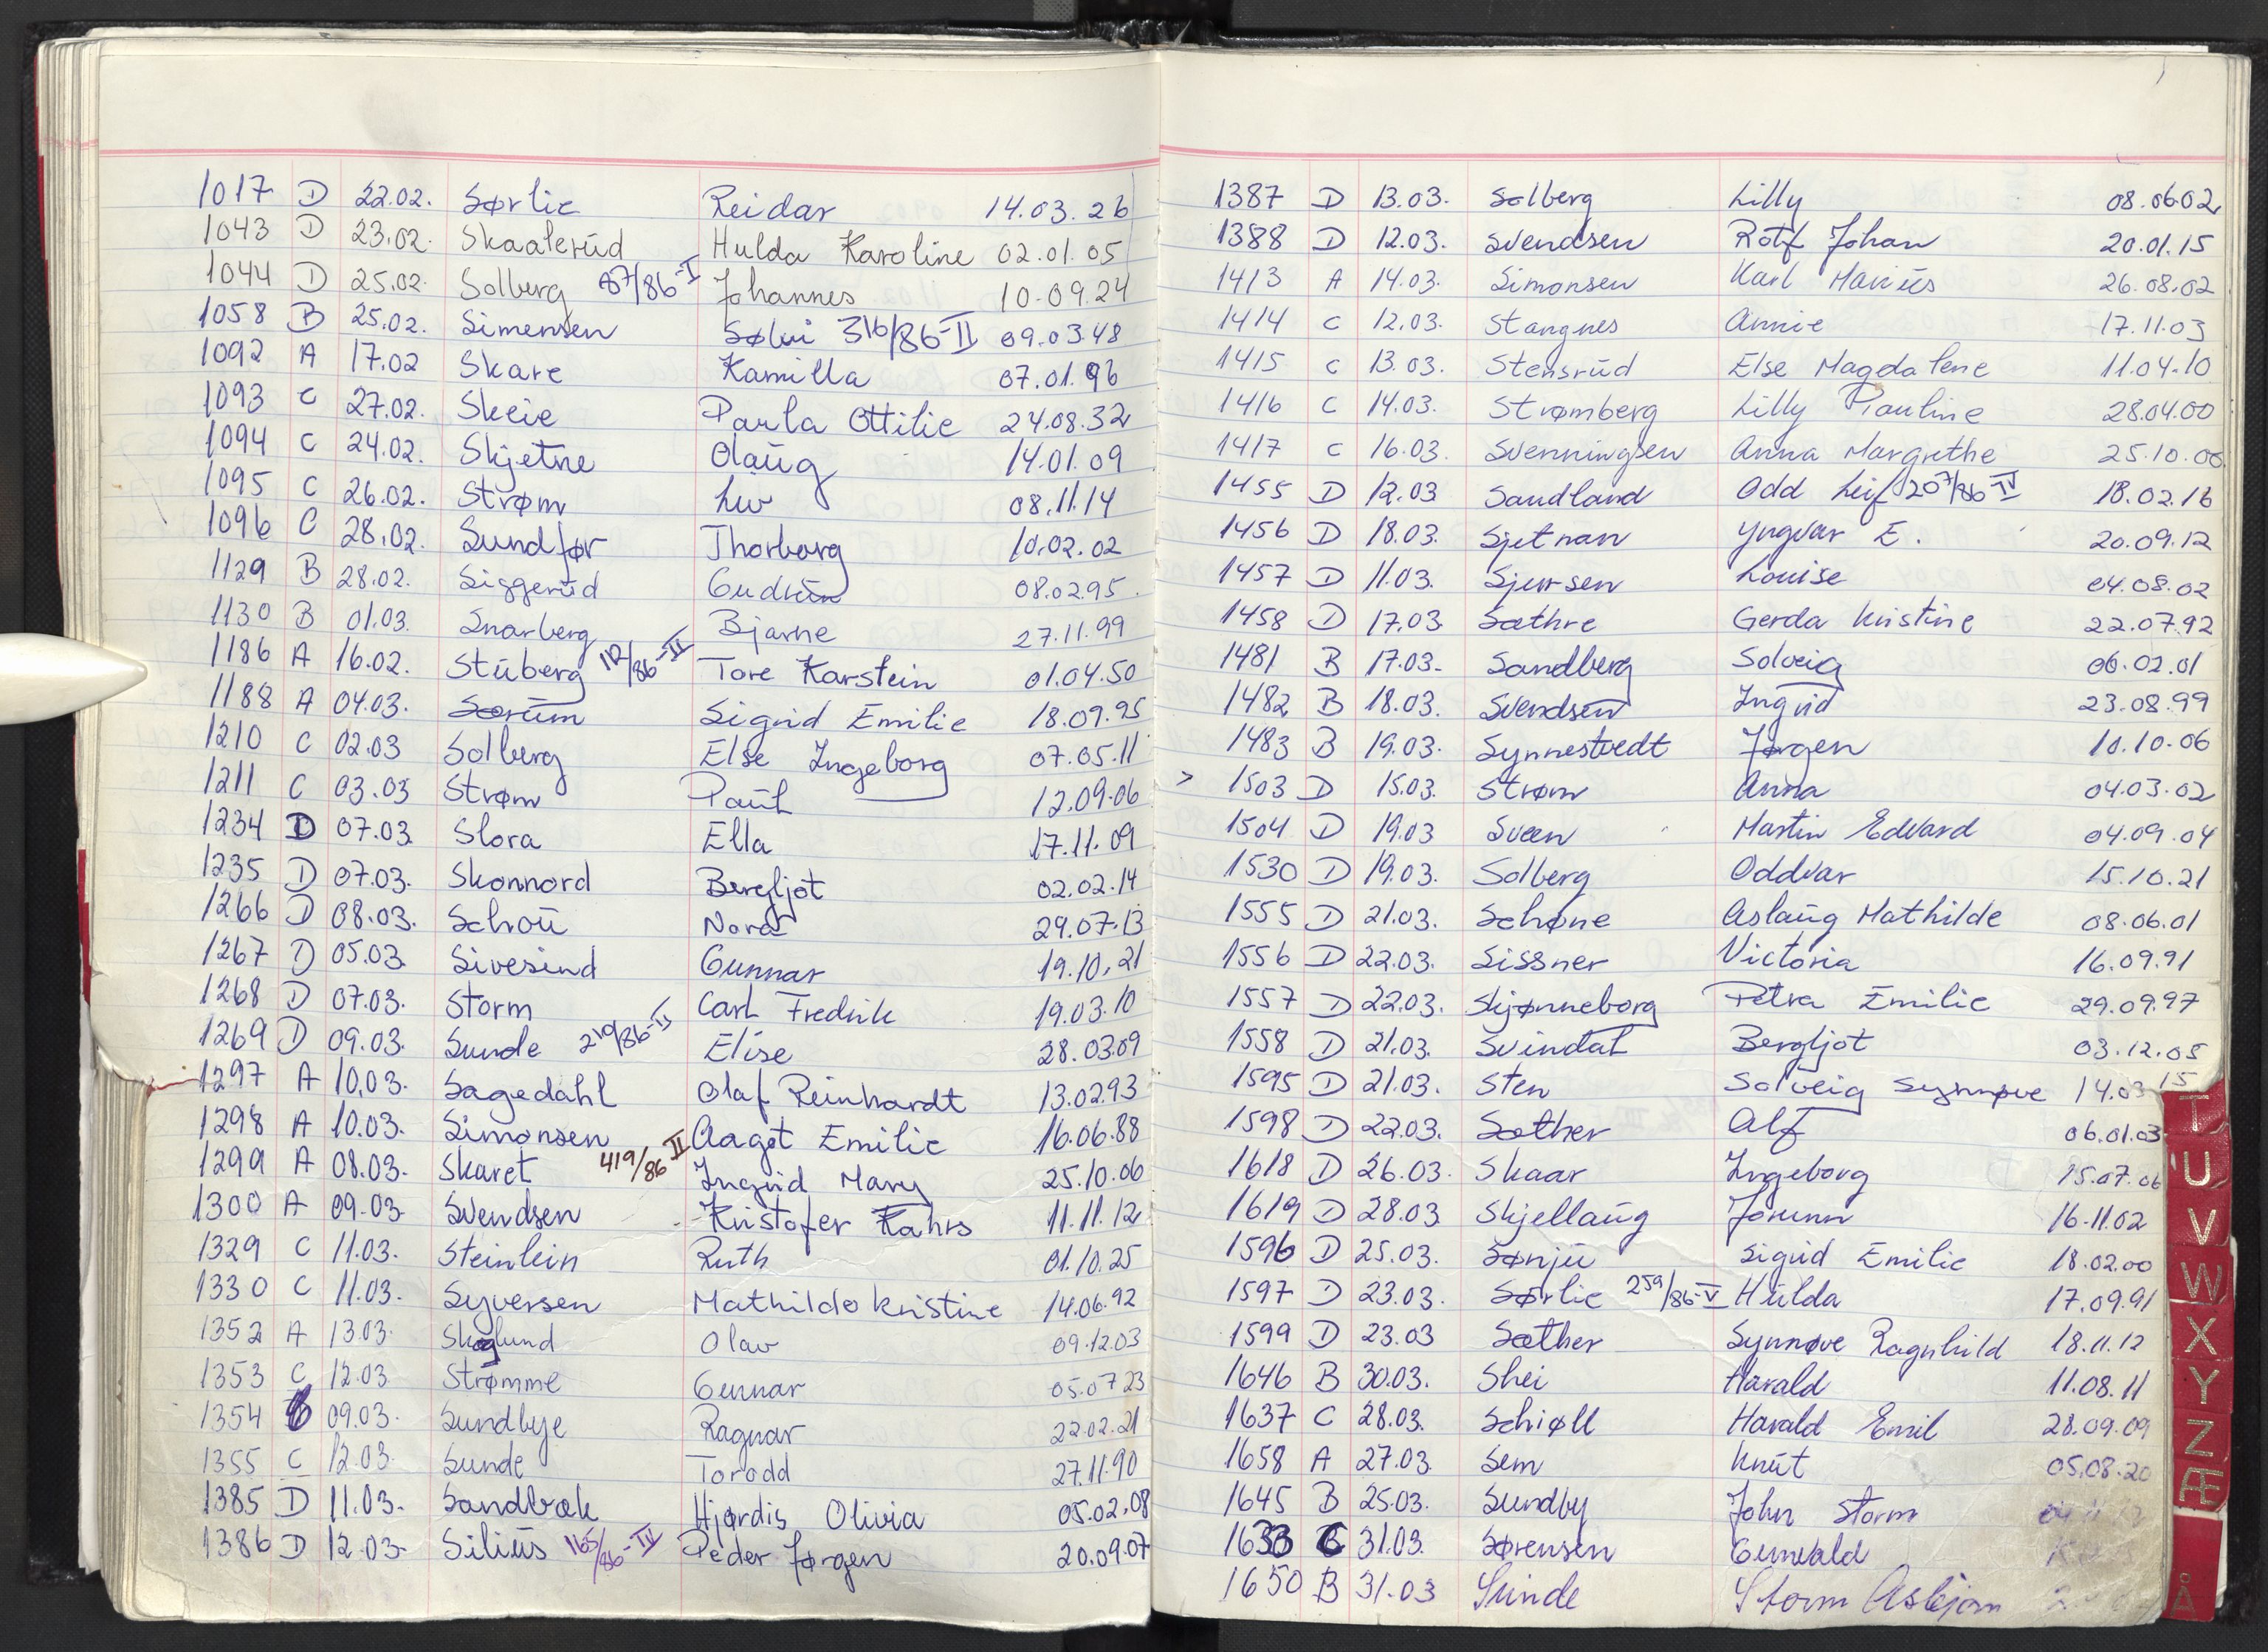 1017 D 22.02. Sørlie Reidar 14.03.26
1043 D 23.02. Skaaterud Hulda Karoline 02.01.05
1044 D 25.02. Solberg 87/86-I Johannes 10.09.24
1058 B 25.02. Simensen Sølvi 316/86-II 09.03.48
1092 A 17.02 Skare Kamilla 07.01.96
1093 C 27.02. Skeie Paula Ottilie 24.08.32
1094 C 24.02. Skjetne Olaug 14.01.09
1095 C 26.02. Strøm Liv 08.11.14
1096 C 28.02. Sundfør Thorborg 10.02.02
1129 B 28.02. Siggerud Gudrun 08.02.95.
1130 B 01.03. Snarberg Bjarne 27.11.99
1186 A 16.02. Stuberg 112/86-II Tore Karstein 01.04.50
1188 A 04.03. Sørum Sigrid Emilie 18.09.95
1210 C 02.03 Solberg Else Ingeborg 07.05.11
1211 C 03.03 Strøm Paul 12.09.06
1234 D 07.03 Slora Ella 17.11.09
1235 D 07.03. Skonnord Bergljot 02.02.14
1266 D 08.03. Schou Nora 29.07.13
1267 D 05.03. Sivesind Gunnar 19.10.21
1268 D 07.03. Storm Carl Fredrik 19.03.10
1269 D 09.03. Sunde 210/86-II Elise 28.03.09
1297 A 10.03. Sagedahl Olaf Reinhardt 13.02.93
1298 A 10.03. Simonsen Aagot Emilie 16.06.88
1299 A 08.03. Skaret 419/86 II Ingrid Mary 25.10.06
1300 A 09.03 Svendsen Kristofer Kahrs 11.11.12
1329 C 11.03. Steinlein Ruth 01.10.25
1330 C 11.03. Syversen Mathilde Kristine 14.06.92
1352 A 13.03. Skoglund Olav 09.12.03
1353 C 12.03 Strømme Gunnar 05.07 23
1354 09.03. Sundbye Ragnar 22.02.21
1355 C 12.03 Sunde Torodd 27.11.90
1385 D 11.03. Sandbæk Hjørdis Olivia 05.02.08
1386 D 12.03. Silius 165/86-IV Peder Jørgen 20.09.07
1387 D 13.03. Solberg Lilly 08.06.02
1388 D 12.03. Svendsen Rolf Johan 20.01.15
1413 A 14.03. Simonsen Karl Marius 26.08.02
1414 C 12.03. Stangnes Annie 17.11.03
1415 C 13.03. Stensrud Else Magdalene 11.04.10
1416 C 14.03. Strømberg Lilly Pauline 28.04.00
1417 C 16.03. Svenningsen Anna Margrethe 25.10.00
1455 D 12.03 Sandland Odd Leif 207/86 IV 18.02.16
1456 D 18.03. Sjetnan Yngvar E. 20.09.12
1457 D 11.03. Sjursen Louise 04.08.02
1458 D 17.03. Sæthre Gerda Kristine 22.07.92
1481 B 17.03. Sandberg Solveig 06.02.01
1482 B 18.03. Svendsen Ingrid 23.08.99
1483 B 19.03. Synnestvedt Jørgen 10.10.06
> 1503 D 15.03. Strøm Anna 04.03.02
1504 D 19.03 Sveen Martin Edvard 04.09.04
1530 D 19.03. Solberg Oddvar 15.10.21
1555 D 21.03. Schøne Aslaug Mathilde 08.06.01
1556 D 22.03. Sissner Victoria 16.09.91
1557 D 22.03. Skjønneborg Petra Emilie 29.09.97
1558 D 21.03. Svindal Bergljot 03.12.05
1595 D 21.03. Sten Solveig Synnøve 14.03 15
1598 D 22.03. Sæther Alf 06.01.03
1618 D 26.03. Skaar Ingeborg 15.07.06
1619 D 28.03 Skjellaug Jorunn 16.11.02
1596 D 25.03. Sønju Sigrid Emilie 18.02.00
1597 D 23.03. Sørlie 259/86-V Hulda 17.09.91
1599 D 23.03 Sæther Synnøve Ragnhild 18.11.12
1646 B 30.03. Skei Harald 11.08.11
1637 C 28.03. Schiøll Harald Emil 28.09.09
1658 A 27.03 Sem Knut 05.08.20
1645 B 25.03. Sundby John Storm
1633 C 31.03. Sørensen Gunvald
1650 B 31.03 Sunde Storm Asbjørn
T
U
V
W
X
Y
Z
Æ
Å